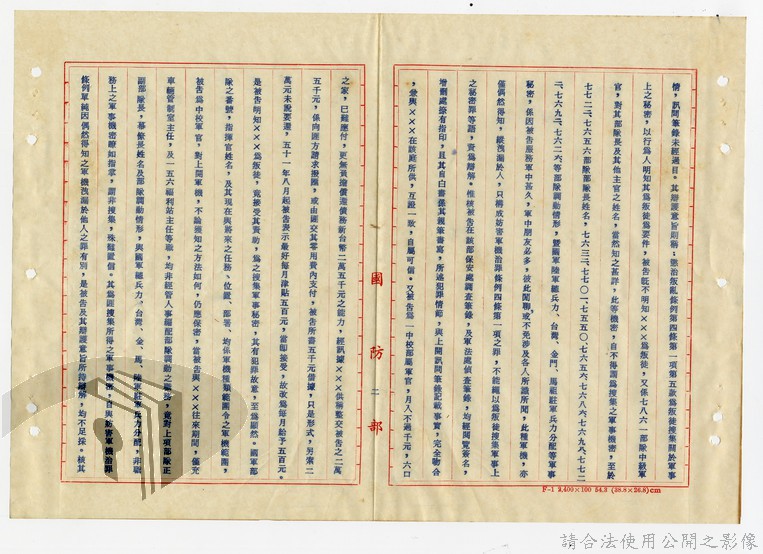 情，訊問筆錄未經過目。其辯護意旨則稱：懲治叛亂條例第四條第一項第五款為叛徒搜集關於軍事
上之秘密，以行為人明知其為叛徒為要件，被告既不明知×××為叛徒，又係七八六一部隊中級軍
官，對其部隊長及其他主官之姓名，當然知之甚詳，此等機密，自不得謂為搜集之軍事機密，至於
秘密，係因被告服務軍中甚久，軍中朋友必多，彼此閒聊或不免涉及各人所識所聞，此種軍機，亦
僅偶然得知，縱洩漏於人，只構成妨害軍機治罪條例四條第一項之罪，不能繩以為叛徒搜集軍事上
之秘密罪等語，資為辯解。惟核被告在該部保安處調查筆錄，及軍法處偵查筆錄，均經閱覽簽名，
增刪處捺有指印，且其自白書係其親筆書寫，所述犯罪情節，與上開訊問筆錄記載事實，完全吻合
，兼與×××在該庭所供，互證一致，自屬可信。又被告為一中校部屬軍官，月入不過千元，六口
國防部
之家，已難應付，更無負擔償還債務新台幣二萬五千元之能力，經訊據×××供稱整交被告之二萬
五千元，係向匪方請求撥滙，或由匪交其零用費內支付，被告所書五千元借據，只是形式，另案二
萬元未說要還，五十一年八月起被告表示最好每月津貼五百元，當卽接受，故改為每月給予五百元。
是被告明知×××為叛徒，竟接受其資助，為之搜集軍事秘密，其有犯罪故意，至臻顯然。國軍部
隊之番號，指揮官姓名，及其現在與將來之任務、位置、部署、均係軍機種類範圍令之軍機範圍，
被告為中校軍官，對上開軍機，不論獲知之方法如何，仍應保密，當被告與×××往來期間，僅充
車輛管制室主任，及一五六福利站主任等職，均非經管人事編配部隊調動之職務，竟對上項部隊正
副部隊長，幕僚長姓名及部隊調動情形，與國軍總兵力、台灣、金、馬、陸軍駐軍兵力分配，非職
務上之軍事機密瞭如指掌，謂非搜集，殊難置信。其為匪搜集所得之軍事機密，自與妨害軍機治罪
條例單純因偶然得知之軍機洩漏於他人之罪有別，是被告及其辯護意旨所持辯解，均不足採。核其
F-1 2,400×100 54.3 (38.8×26.8)cm
請合法使用公開之影像